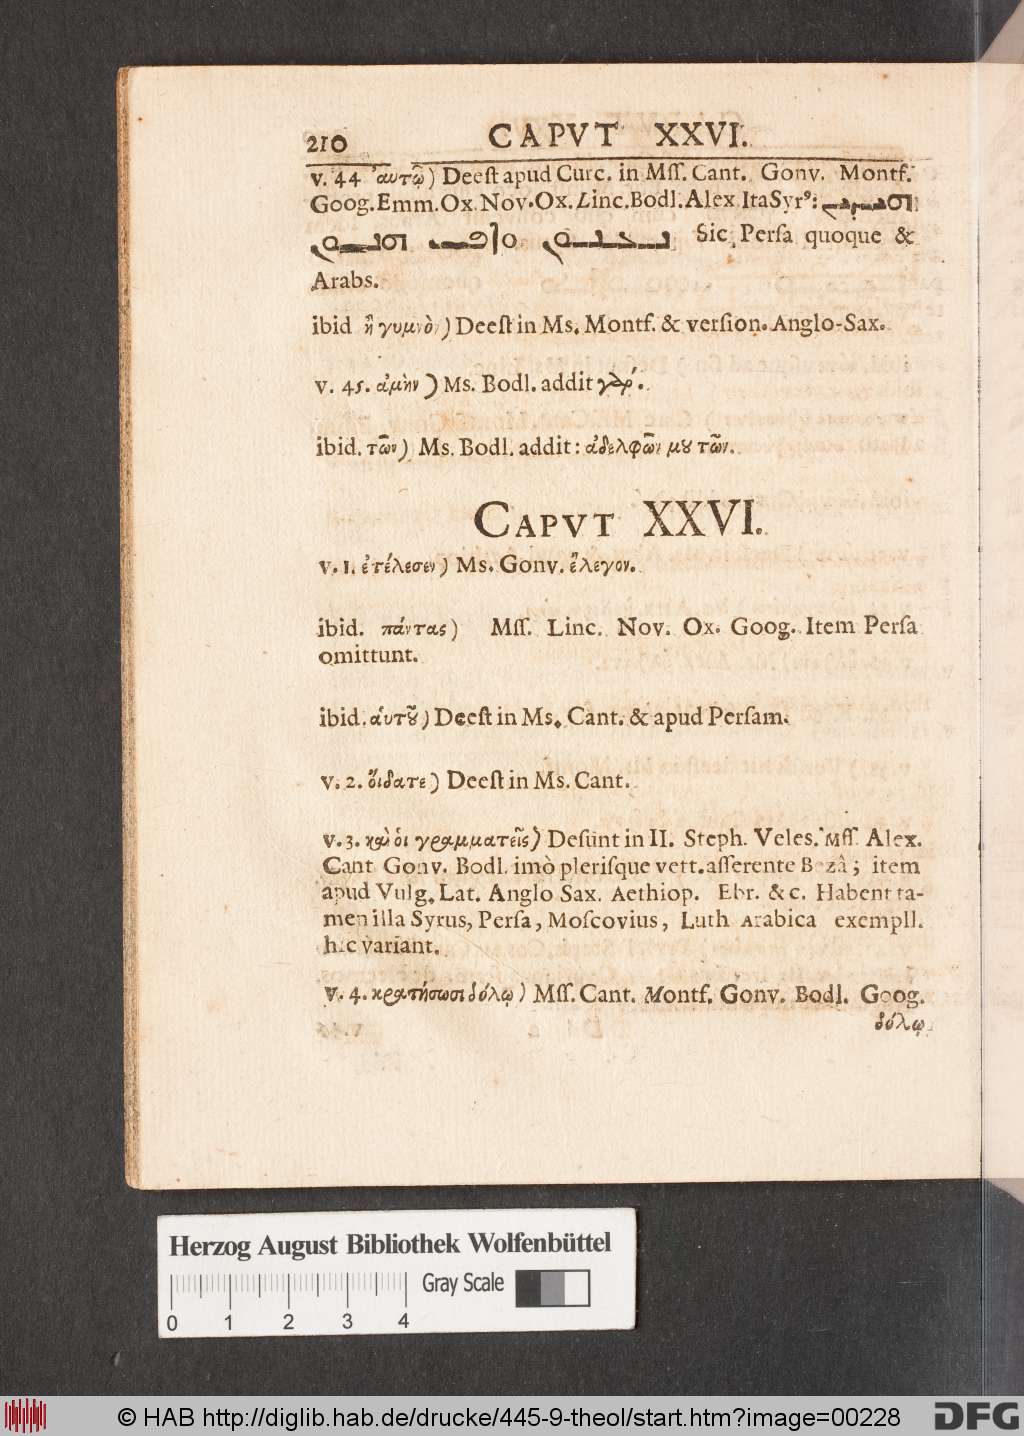 210 CAPVT XXVI.
v. 44 ἀυτῷ) Deeſt apud Curc. in Mſſ. Cant. Gonv. Montf.
Goog. Emm. Ox. Nov. Ox. Linc. Bodl. Alex Ita Syrꝰ:
Sic Perſa quoque &
Arabs.
ibid ἢ γυμνὸν) Deeſt in Ms. Montf. & verſion. Anglo-Sax.
v. 45. ἀμὴν) Ms. Bodl. addit γάρ.
ibid. τῶν) Ms. Bodl. addit: ἀδελφῶν μȣ τῶν.
CAPVT XXVI.
v. 1. ἐτέλεσεν) Ms. Gonv. ἔλεγον.
ibid. πάντας) Mſſ. Linc. Nov. Ox. Goog. Item Perſa
omittunt.
ibid. ἁυτȣ͂) Deeſt in Ms. Cant. & apud Perſam.
v. 2. ὄιδατε) Deeſt in Ms. Cant.
v. 3. καὶ ὁι γραμματεῖς) Deſunt in II. Steph. Veles. Mſſ. Alex.
Cant Gonv. Bodl. imò pleriſque vett. aſſerente Bezâ; item
apud Vulg. Lat. Anglo Sax. Aethiop. Ebr. &c. Habent ta-
men illa Syrus, Perſa, Moſcovius, Luth Arabica exempll.
hic variant.
v. 4. κρατήσωσι δόλῳ) Mſſ. Cant. Montf. Gonv. Bodl. Goog.
δόλῳ
Herzog August Bibliothek Wolfenbüttel
Gray Scale
0 1 2 3 4
© HAB http://diglib.hab.de/drucke/445-9-theol/start.htm?image=00228
DFG